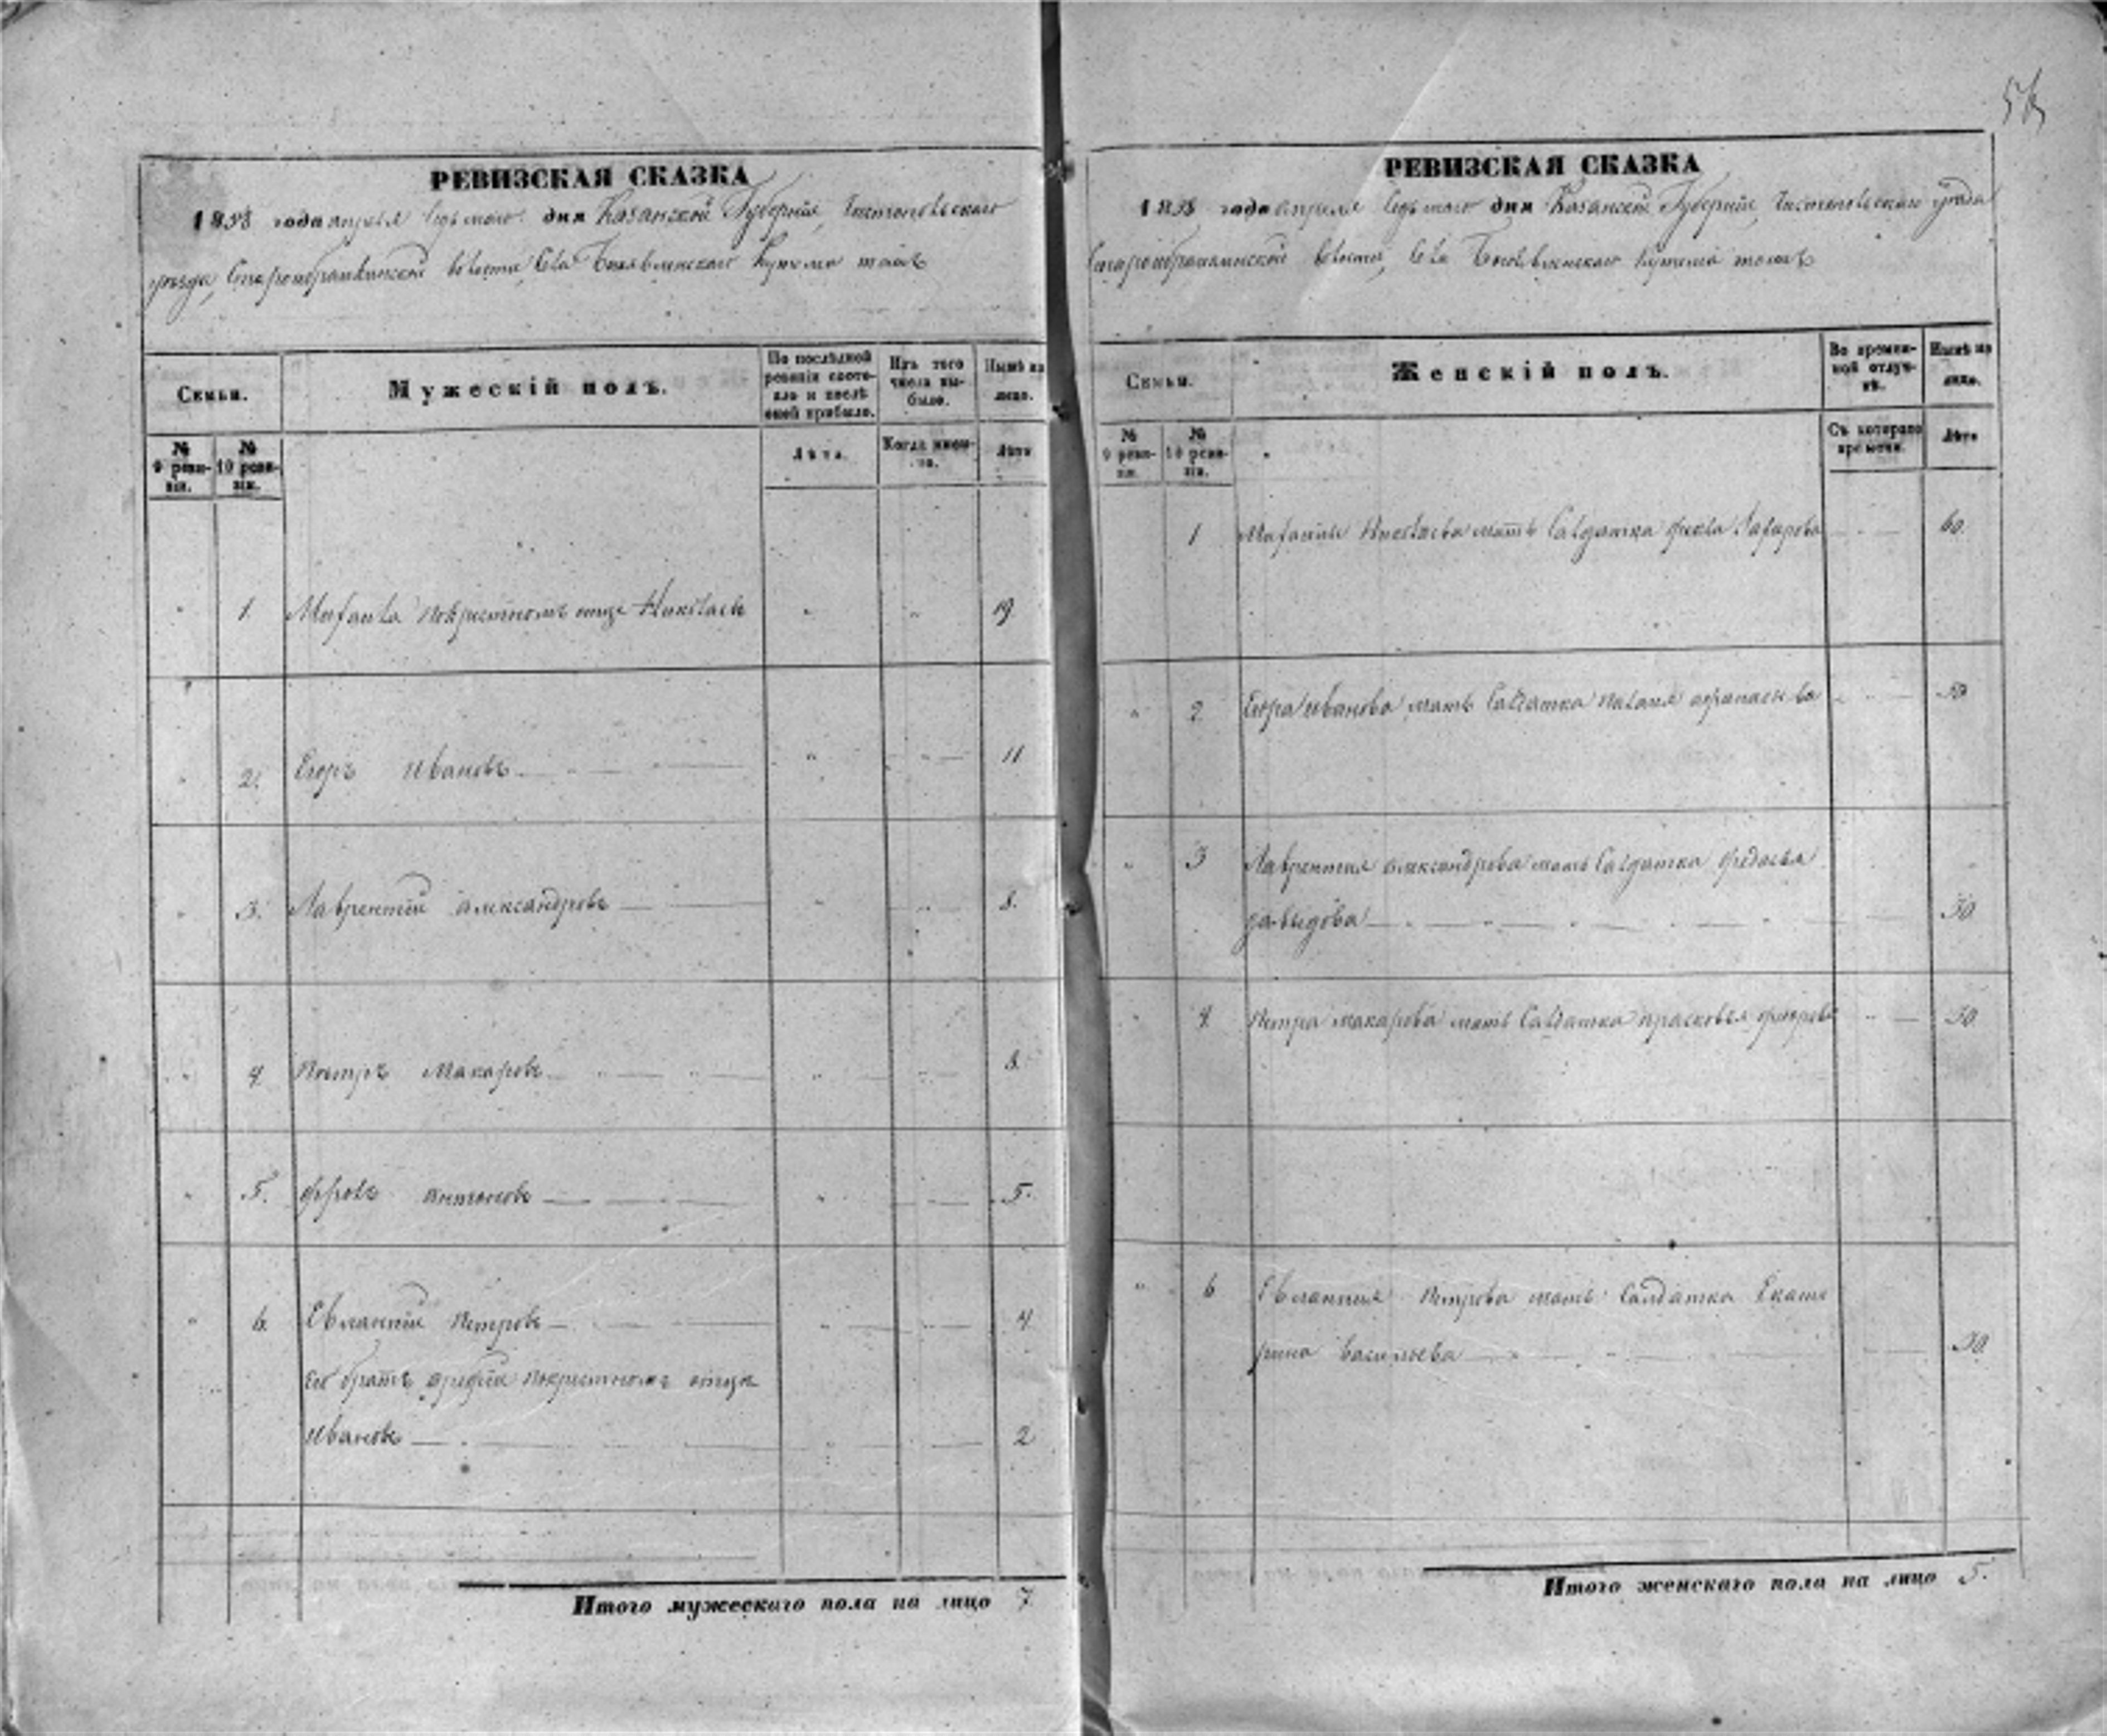 РЕВИЗСКАЯ СКАЗКА
1858 года апреля седьмого дня Казанской Губернии, Чистопольскаго
уезда, волости, Села Богоявленскаго
Семьи.
Мужескій полъ.
По послѣдней ревизіи состояло и послѣ оной прибыло.
Изъ того числа выбыло.
Нынѣ на лицо.
№ 9 ревизіи.
№ 10 ревизіи.
Лѣта.
Когда именно.
Лѣта
1. по крестномъ отце Николаевъ 19
2. Егоръ Ивановъ 11
3. Лаврентій Александровъ 8.
4. Петръ Макаровъ 8.
5. Фролъ Антоновъ 5.
6. Евлампій Петровъ 4
Ево братъ по крестномъ отце
Ивановъ 2
Итого мужескаго пола на лицо 7
56
РЕВИЗСКАЯ СКАЗКА
1858 года апреля седьмого дня Казанской Губерніи, Чистопольскаго уезда
волости, Села Богоявленскаго
Семьи.
Женскій полъ.
Во временной отлучкѣ.
Нынѣ на лицо.
№ 9 ревизіи.
№ 10 ревизіи.
Съ котораго времени.
Лѣта
1 Николаева мать Салдатка Фекла Захарова 60.
2 Егора Иванова мать Салдатка Афанасьева
3 Лаврентия Александрова мать Салдатка Федосья
давыдова 30
4. Петра Макарова мать Салдатка прасковья 30
6 Евлампия Петрова мать Салдатка Екате
рина Васильева 30.
Итого женскаго пола на лицо 5.